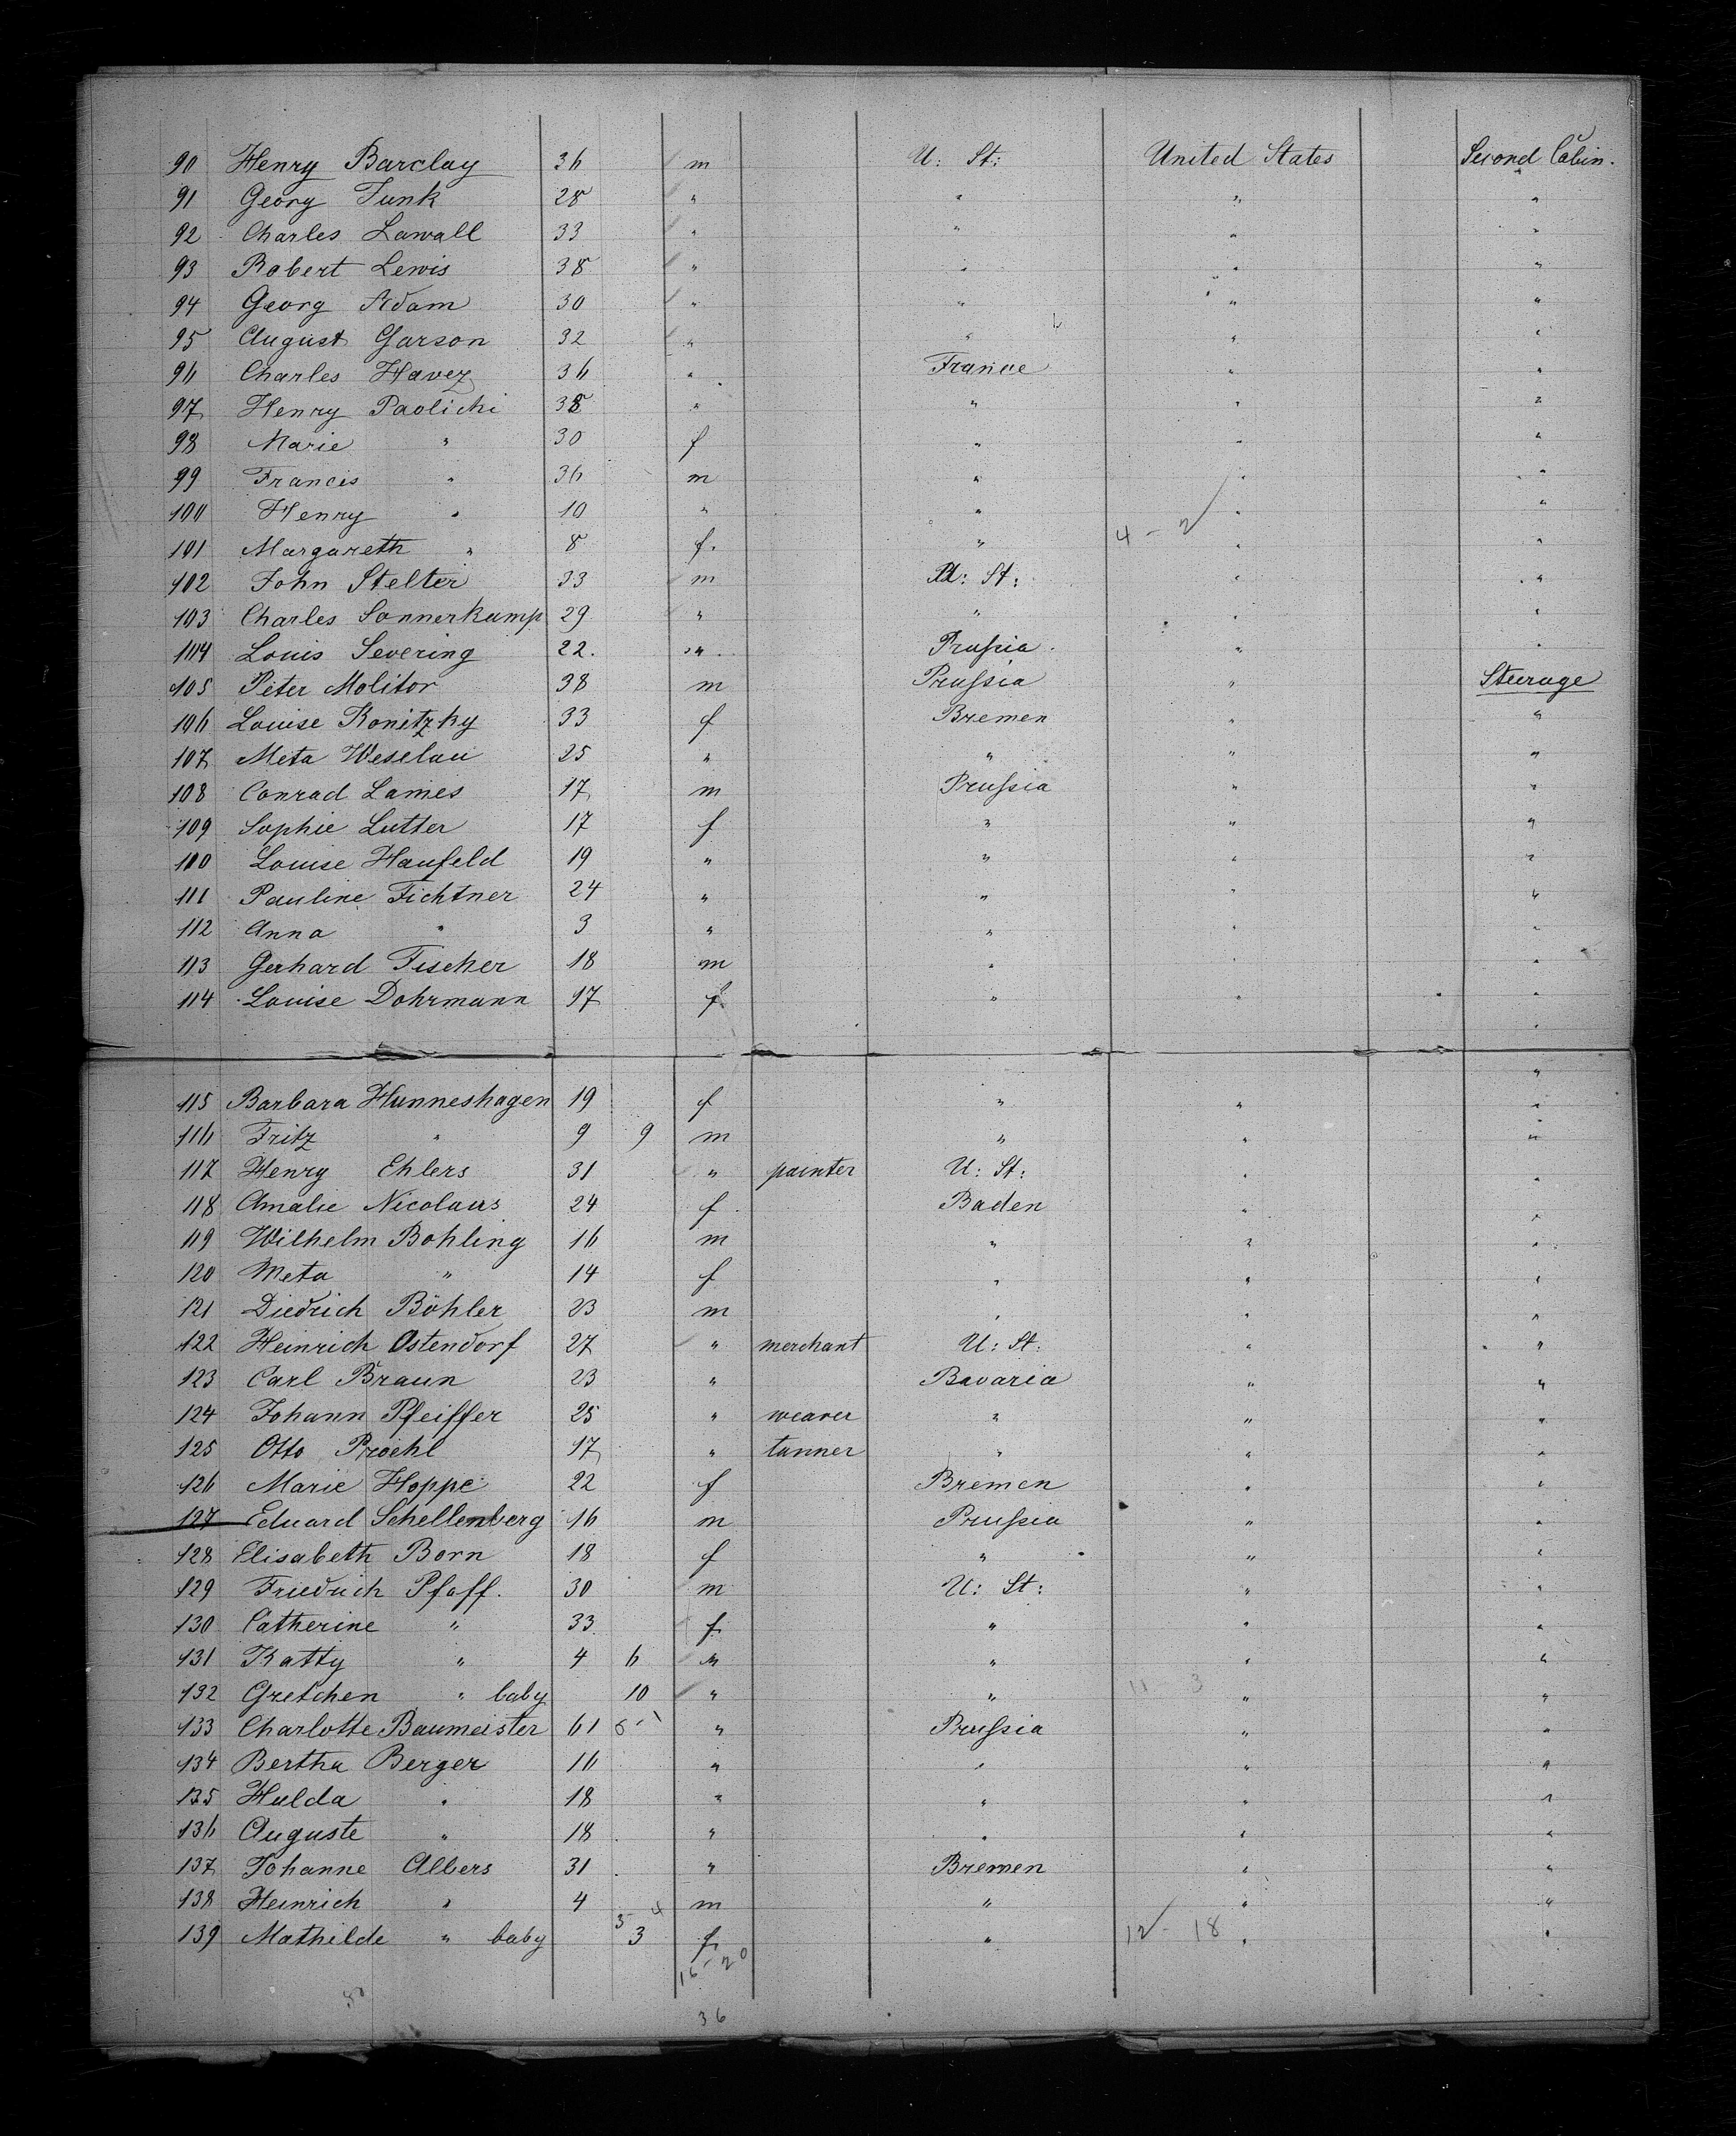 90 Henry Barclay 36 m U: St: United States Second Cabin.
91 Georg Funk 28 " " " "
92 Charles Lawall 33 " " " "
93 Robert Lewis 38 " " " "
94 Georg Adam 30 " " " "
95 August Garson 32 " " " "
96 Charles Havez 36 " France " "
97 Henry Paolichi 38 " " " "
98 Marie " 30 f " " "
99 Francis " 36 m " " "
100 Henry " 10 " " " "
101 Margareth " 8 f. " 4 - 2 " "
102 John Stelter 33 m U: St: " "
103 Charles Sonnerkamp 29 " " " "
104 Louis Severing 22. " Prussia " "
105 Peter Molitor 38 m Prussia " Steerage
106 Louise Konitzky 33 f Bremen " "
107 Meta Weselau 25 " " " "
108 Conrad Lames 17 m Prussia " "
109 Sophie Lutter 17 f " " "
110 Louise Haufeld 19 " " " "
111 Pauline Fichtner 24 " " " "
112 Anna " 3 " " " "
113 Gerhard Fischer 18 m " " "
114 Louise Dohrmann 17 f " " "
115 Barbara Hunneshagen 19 f " " "
116 Fritz " 9 9 m " " "
117 Henry Ehlers 31 " painter U: St: " "
118 Amalie Nicolaus 24 f Baden " "
119 Wilhelm Bohling 16 m " " "
120 Meta " 14 f " " "
121 Diedrich Böhler 23 m " " "
122 Heinrich Ostendorf 27 " merchant U: St. " "
123 Carl Braun 23 " Bavaria " "
124 Johann Pfeiffer 25 " weaver " " "
125 Otto Proehl 17 " tanner " " "
126 Marie Hoppe 22 f Bremen " "
127 Eduard Schellenberg 16 m Prussia " "
128 Elisabeth Born 18 f " " "
129 Friedrich Pfaff. 30 m U: St: " "
130 Catherine " 33 f " " "
131 Katty " 4 6 " " " "
132 Gretchen " baby 10 " " 11 - 3 " "
133 Charlotte Baumeister 61 " Prussia " "
134 Bertha Berger 16 " " " "
135 Hulda " 18 " " " "
136 Auguste " 18 " " " "
137 Johanne Albers 31 " Bremen " "
138 Heinrich " 4 m " " "
139 Mathilde " baby 3 f " 12 - 18 " "
16 - 20
36